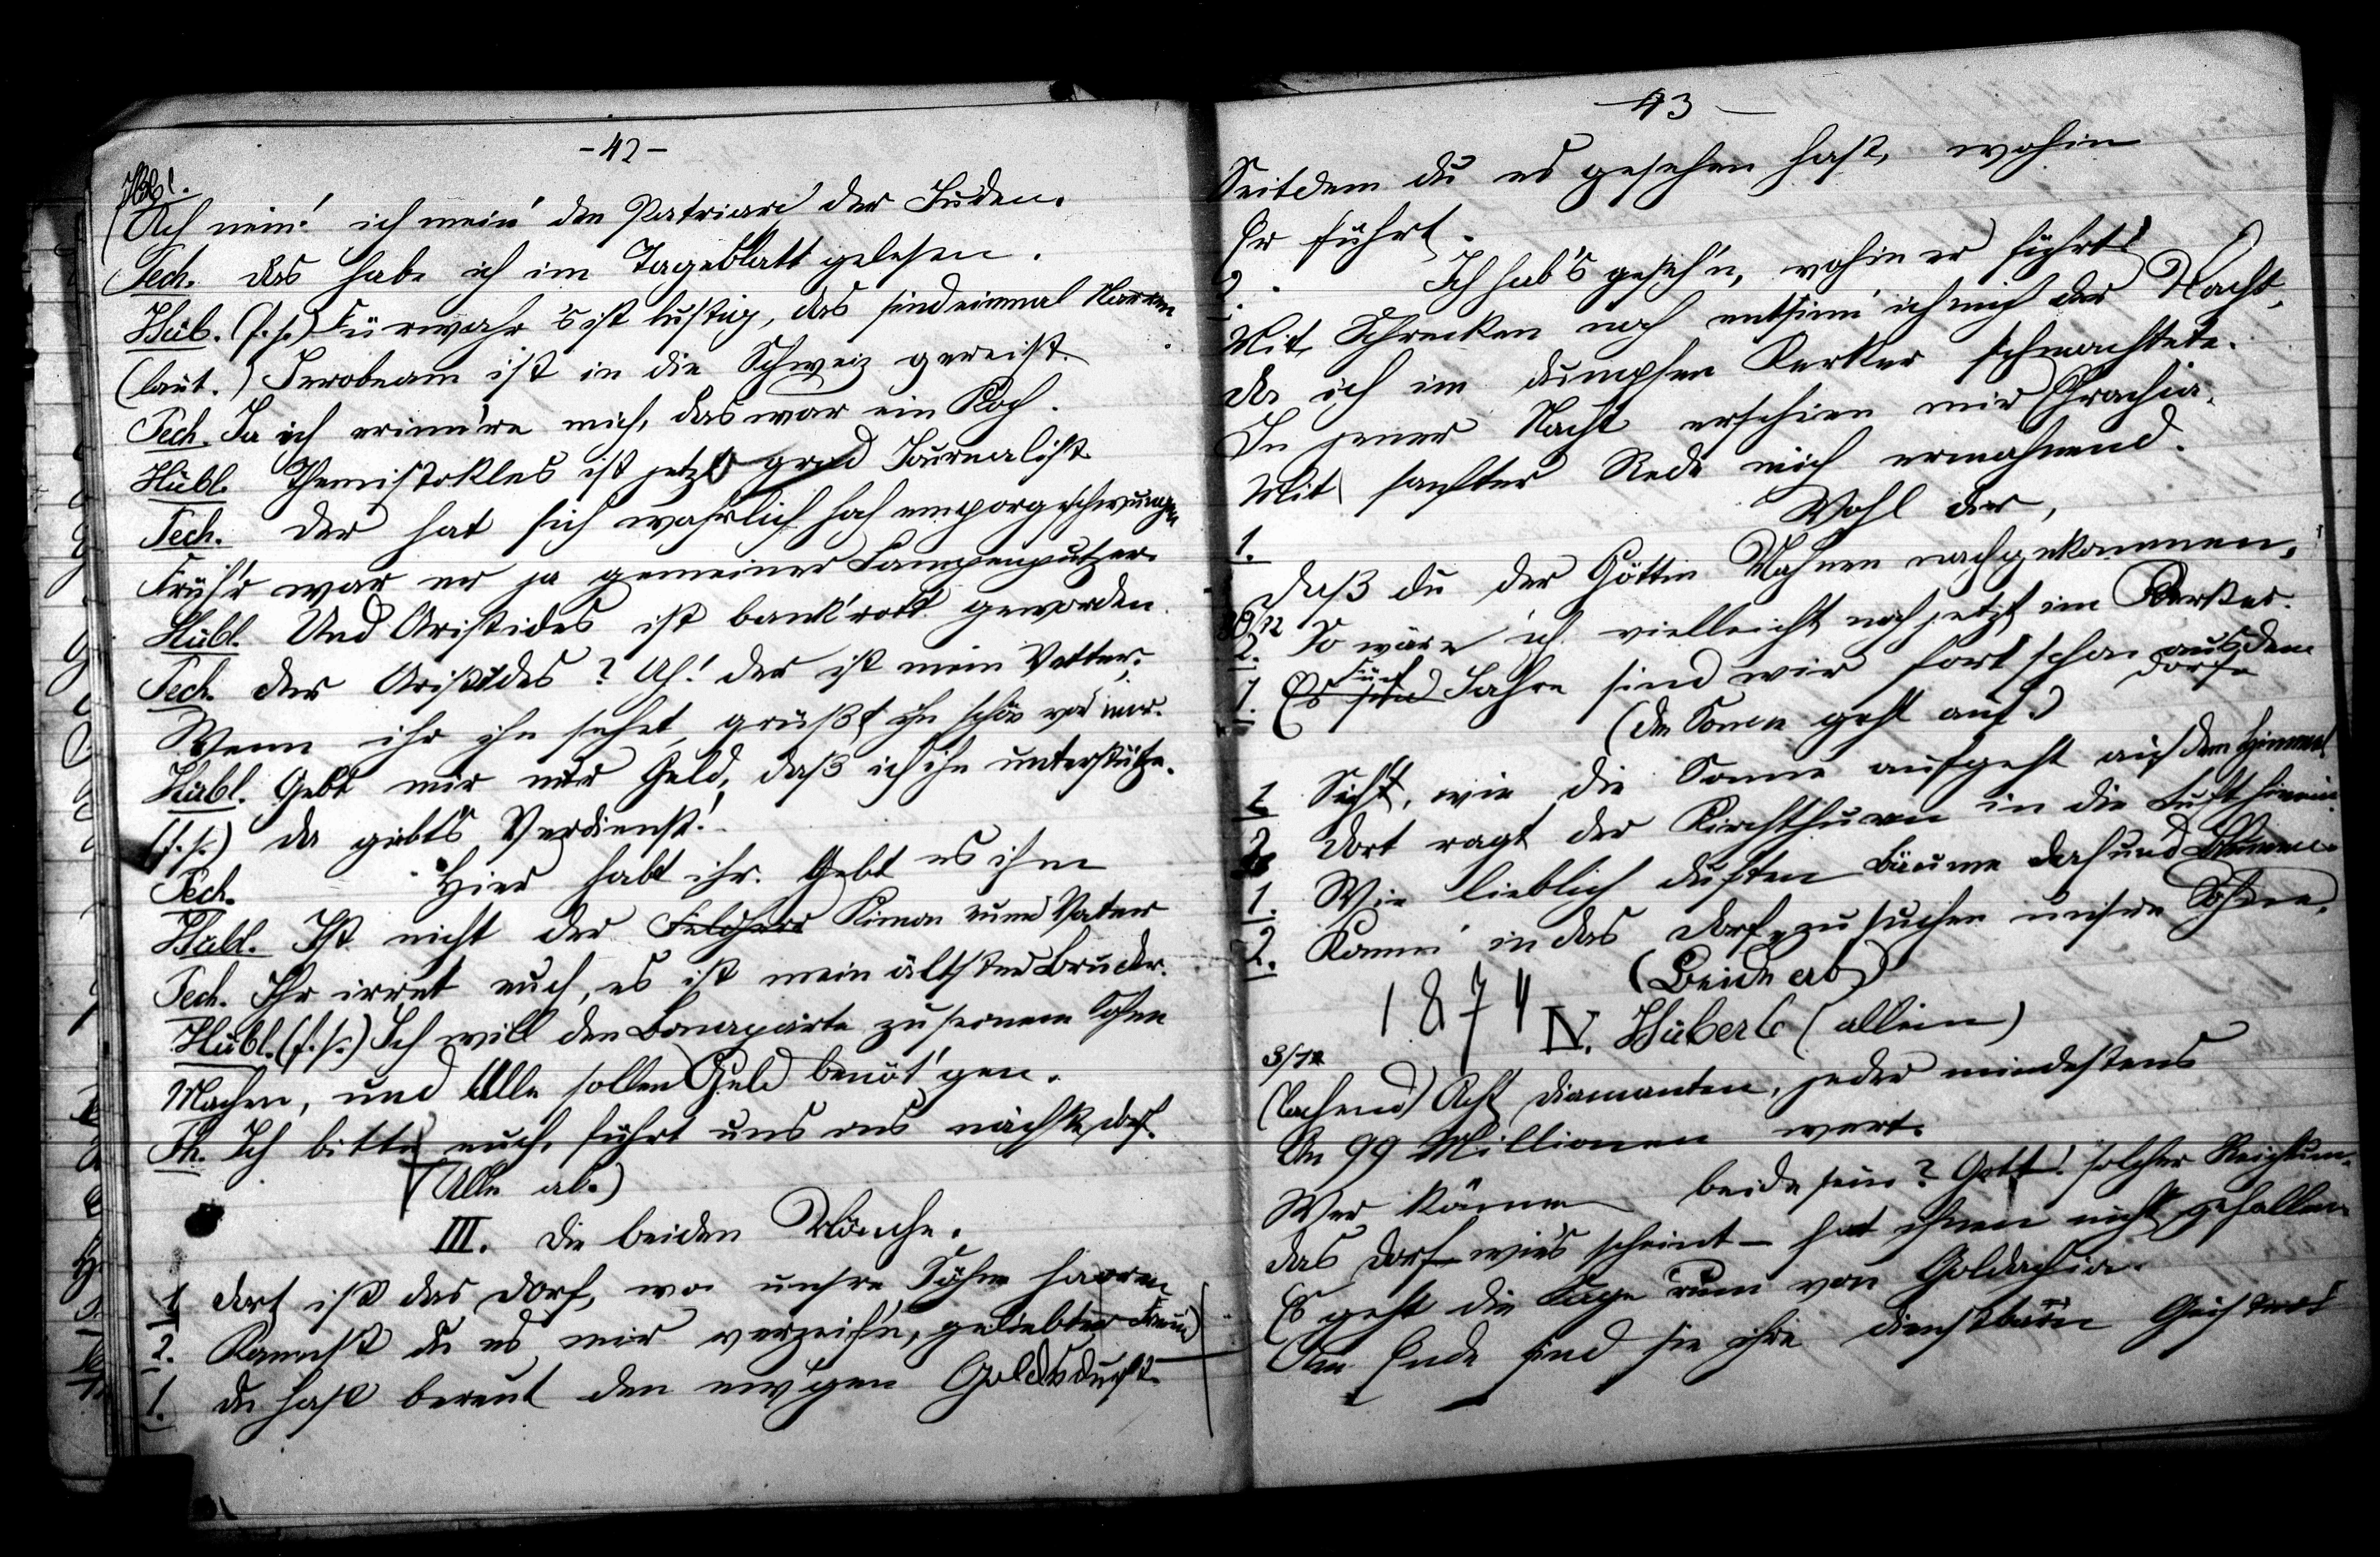 -42-
Hübl.
Ach nein! ich mein' den Patriarc' der Juden.
Tech. Das habe ich im Tageblatt gelesen.
Hüb. (f. s.) Fürwahr 's ist lustig, das sind einmal Narren
(laut.) Jerobeam ist in die Schweiz gereist.
Tech. Ja ich erinn're mich, das war ein Koch.
Hübl. Themistokles ist jetzt grad Journalist
Tech. Der hat sich wahrlich hoch emporgeschwungen
Früh'r war er ja gemeiner Lampenputzer.
Hübl. Und Aristides ist bank'rott geworden.
Tech. Der Aristides? Ah! der ist mein Vetter;
Wenn ihr ihn sehet, grüßt ihn schön von mir.
Hübl. Gebt mir nur Geld, daß ich ihn unterstütze.
(f. s.) Da giebt's Verdienst!
Tech. Hier habt ihr. Gebt es ihm
Hübl. Ist nicht der Feldherr Kimon eure Vater
Tech. Ihr irret euch, es ist mein ältster Bruder.
Hübl. (f. s.) Ich will den Bonaparte zu seinem Sohne
Machen, und Alle sollen Geld benöt'gen.
Th. Ich bitte euch, führt uns ins nächste Dorf.
(Alle ab.)
III. Die beiden Mönche.
1 Dort ist das Dorf, wo unsre Söhne harren
2. Kannst du es mir verzeih'n, geliebter Freund
1. Du hast bereut den ew'gen Goldsdurst.
43
Seitdem du es gesehen hast, wohin
Er führt.
2. Ich hab's geseh'n, wohin er führt!
Mit Schrecken noch entsinn' ich mich der Nacht,
Da ich im dumpfen Kerker schmachtete.
In jener Nacht erschien mir
Mit sanfter Rede mich ermahnend.
1. Wohl dir,
Daß du der Göttin Mahnen nachgekommen,
2. So wäre ich vielleicht noch jetzt im Kerker.
1. Es sind Fünf Jahre sind wir fort schon aus dem Dorfe
(Die Sonne geht auf.)
1 Sieht, wie die Sonne aufgeht auf dem Himmel
2 Dort ragt der Kirchthurm in die Luft hinein.
1. Wie lieblich duften Bäume doch und Blumen.
2. Komm' in das Dorf, zu suchen unsre Söhne.
(Beide ab)
1874
IV. Hüberl (allein)
3/12
(lachend) Acht Diamanten, jeder mindestens
An 99 Millionen wert.
Wer können beide sein? Gott! solcher Reichtum.
Das Dorf wie's scheint – hat ihnen nicht gefallen
Es geht die Sage rum von Goldachia.
Am Ende sind sie ihre dienstbar'n Geister